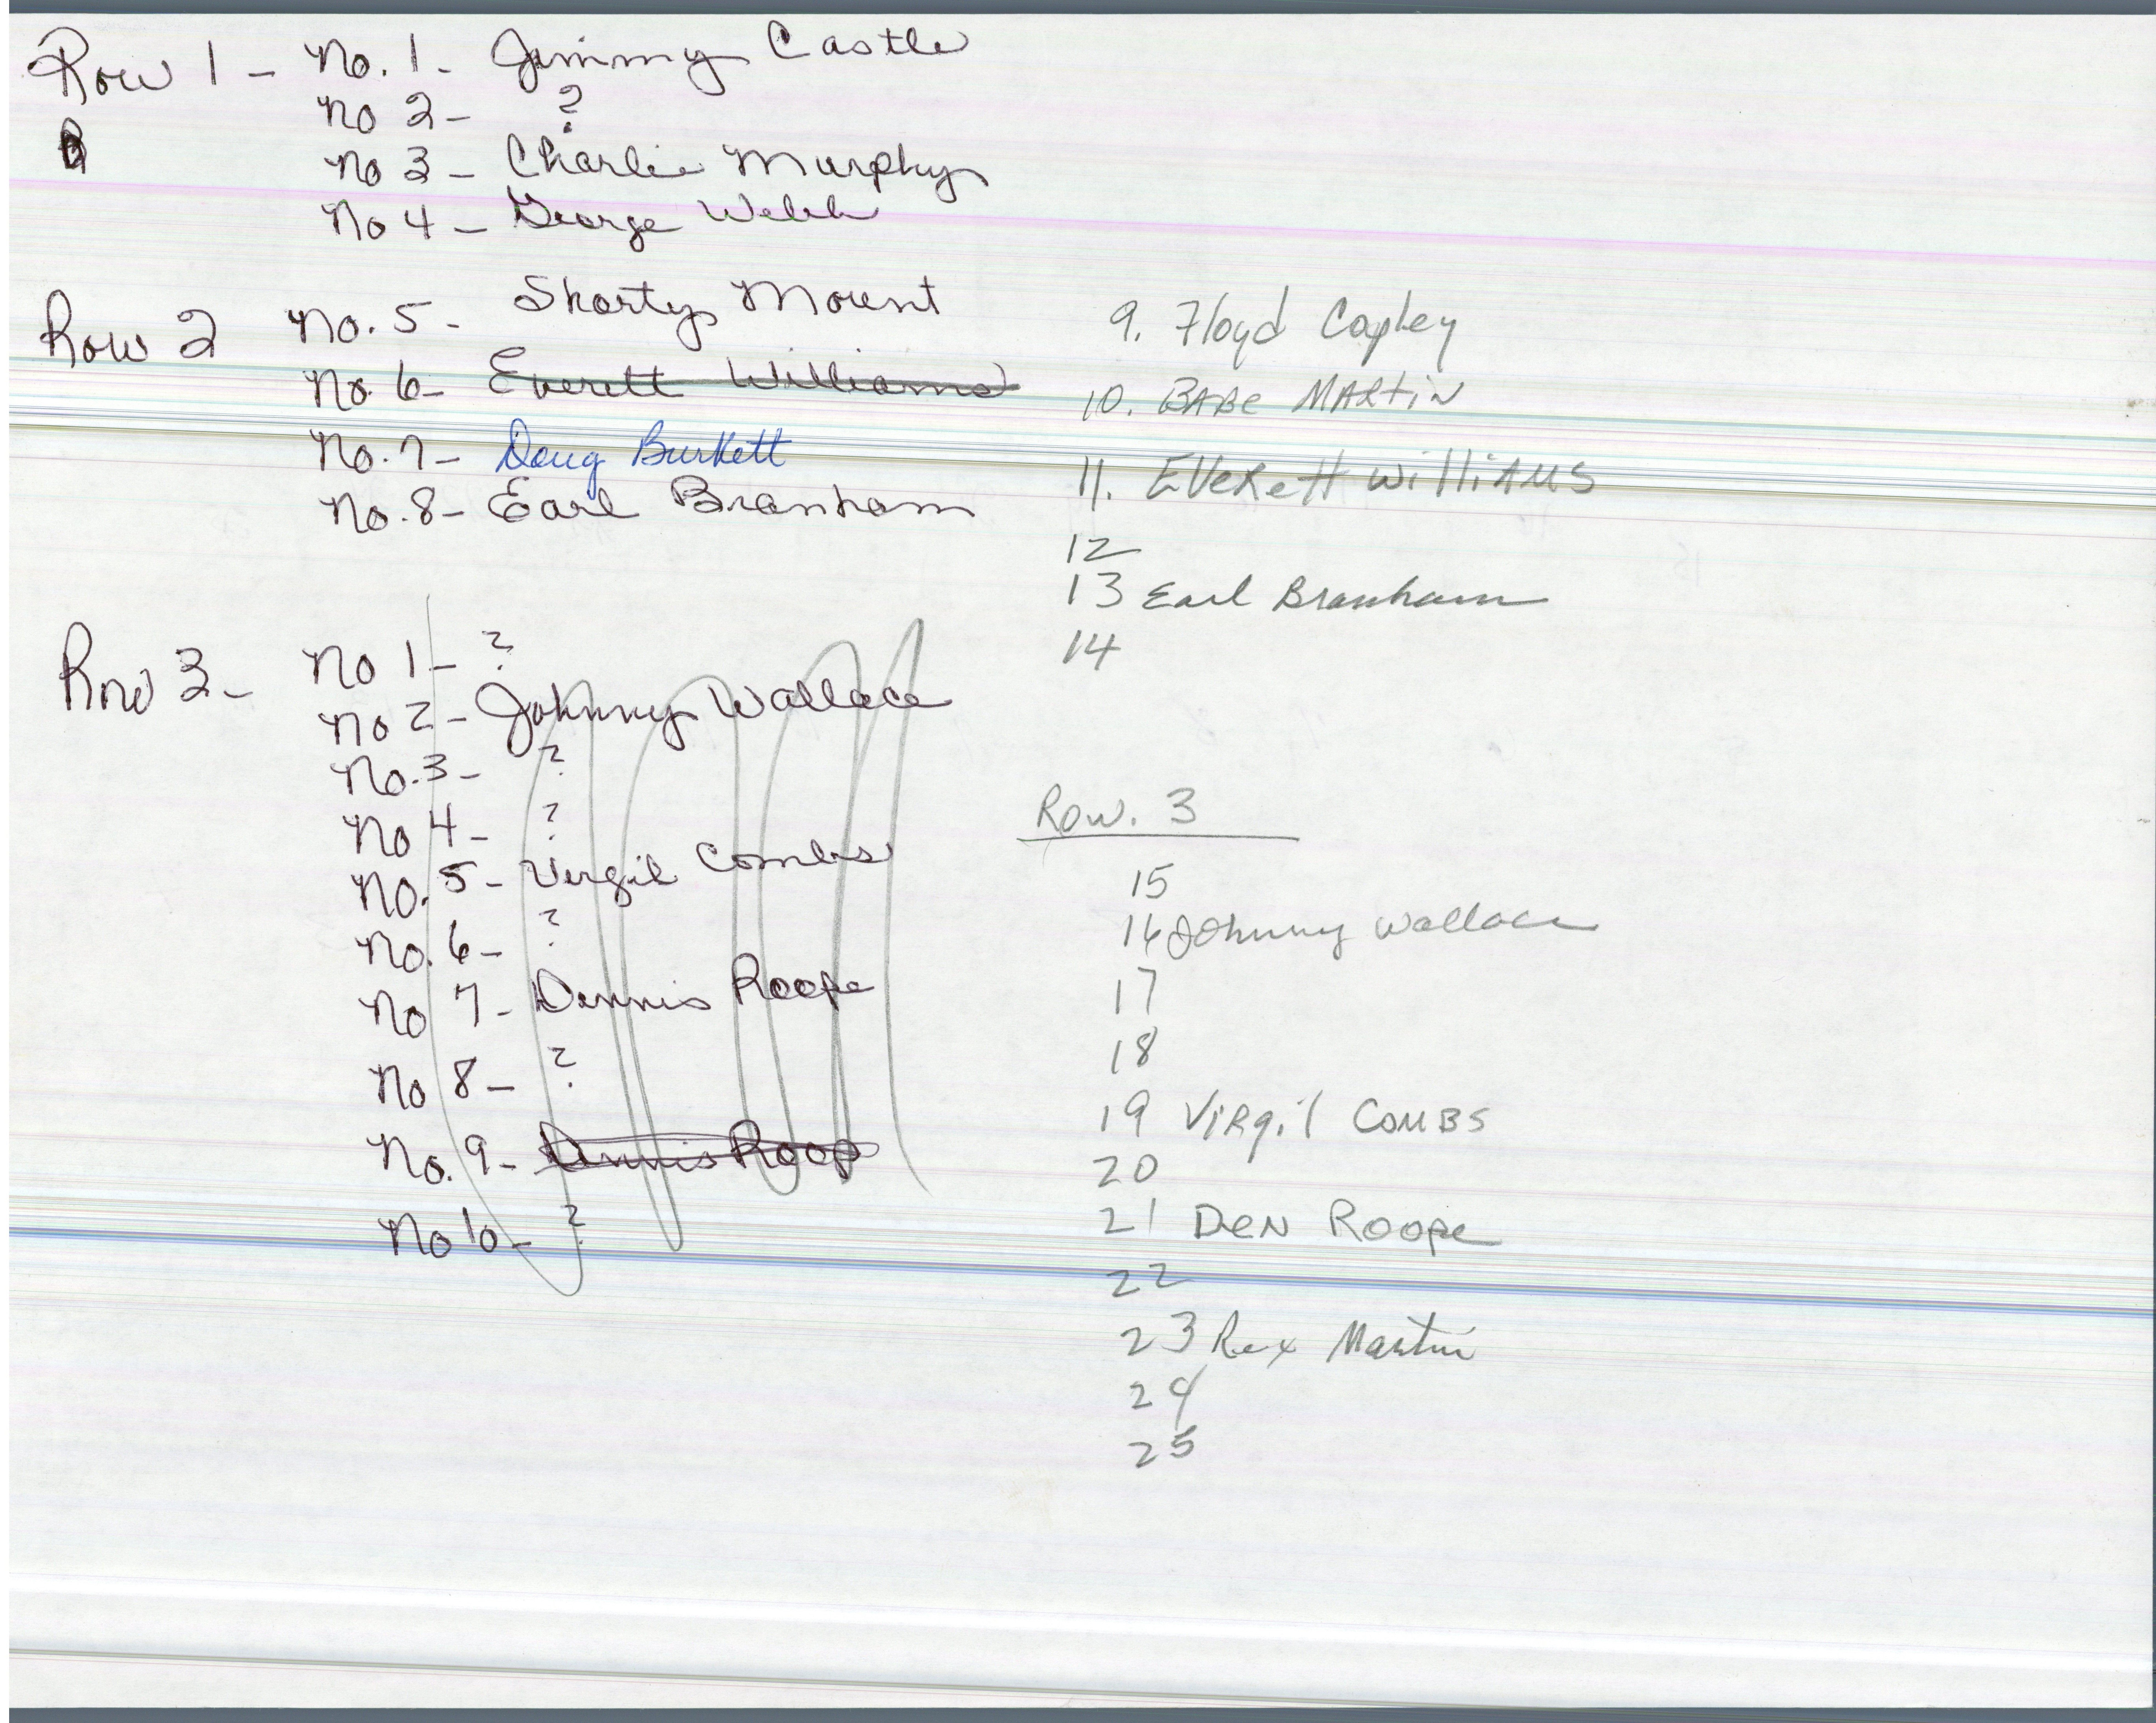 Row 1 - No. 1 - Jimmy Castle
No 2 - ?
No 3 - Charlie Murphy
No 4 - George Welch
Row 2 No. 5 - Shorty Mount
No. 6 - Everett Williams
No. 7 - Doug Burkett
No. 8 - Earl Branham
9. Floyd Copley
10. BABe MARtiN
11. EVeRett WilliAMS
12
13 Earl Branham
14
Row 3 - No 1 - ?
No 2 - Johnny Wallace
No. 3 - ?
No 4 - ?
No. 5 - Virgil Combs
No. 6 - ?
No 7 - Dennis Roope
No 8 - ?
No. 9 - Dennis Roop
No 10 - ?
Row. 3
15
16 Johnny Wallace
17
18
19 ViRgil COMBS
20
21 DeN Roope
22
23 Rex Martin
24
25